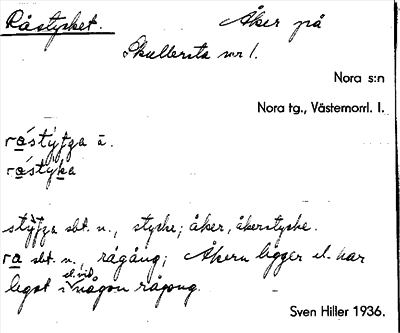 Råstycket. Åker på
Skullersta nr 1.
Nora s:n
Nora tg., Västernorrl. l.
råstyʃʒa ā.
råstyka
styʃʒa sbt. n., stycke; åker, åkerstycke.
ra sbt. n., rågång; Åkern ligger el. har
legat i el. vid någon rågång.
Sven Hiller 1936.